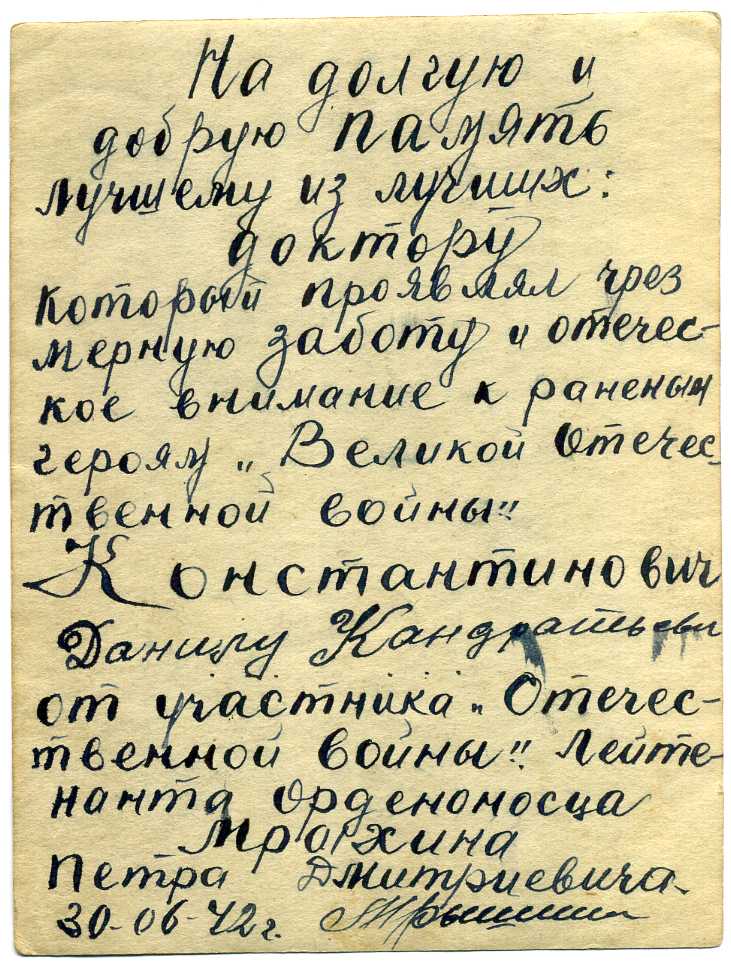 На долгую и
добрую память
лучшему из лучших:
доктору
который проявлял чрез
мерную заботу и отечес-
кое внимание к раненым
героям „Великой Отечес-
твенной войны"
Константинович
Данилу Кандратьеви
от участника „Отечес-
твенной войны"! Лейте-
нанта орденоносца
Петра Дмитриевича.
30-06-42 г.